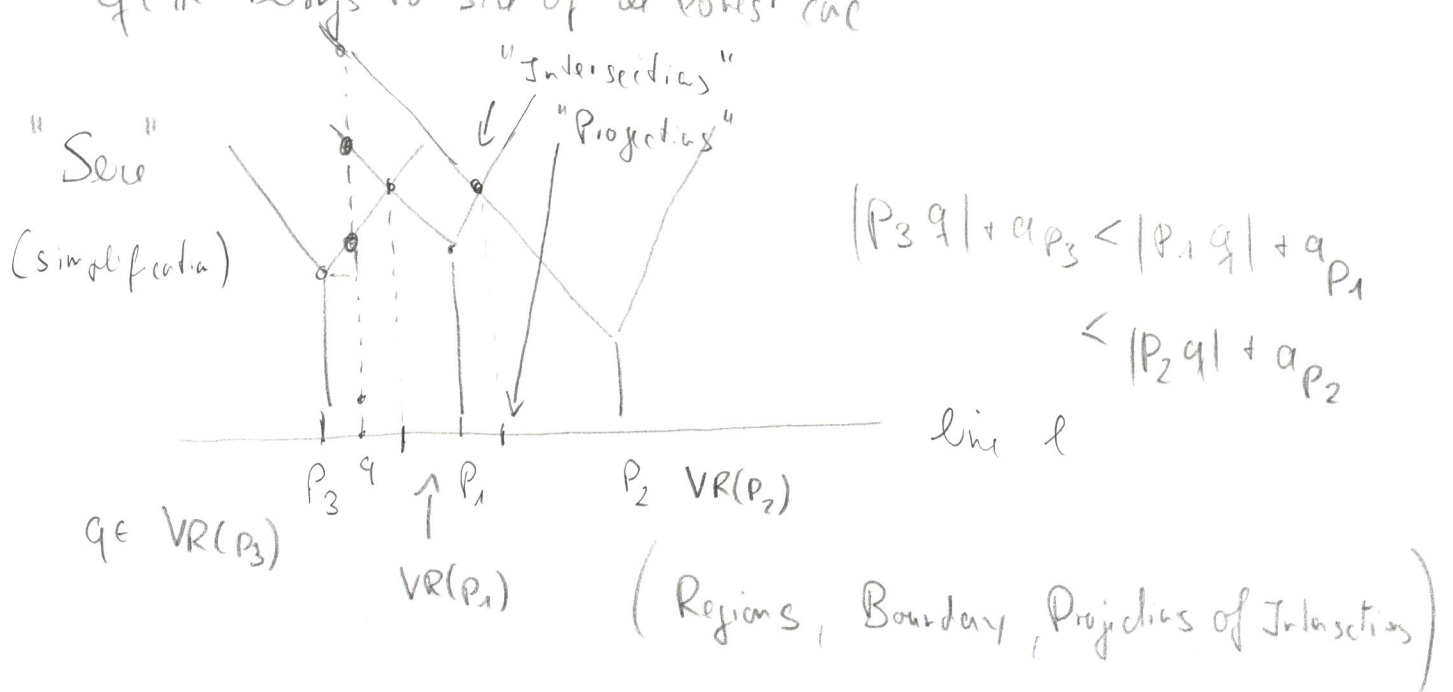 "Intersections"
"Projections"
"Scene"
(simplification)
|P₃ q| + a_P₃ < |P₁ q| + a_P₁
< |P₂ q| + a_P₂
line l
P₃ q P₁ P₂ VR(P₂)
q ∈ VR(P₃)
VR(P₁)
(Regions, Boundary, Projections of Intersections)